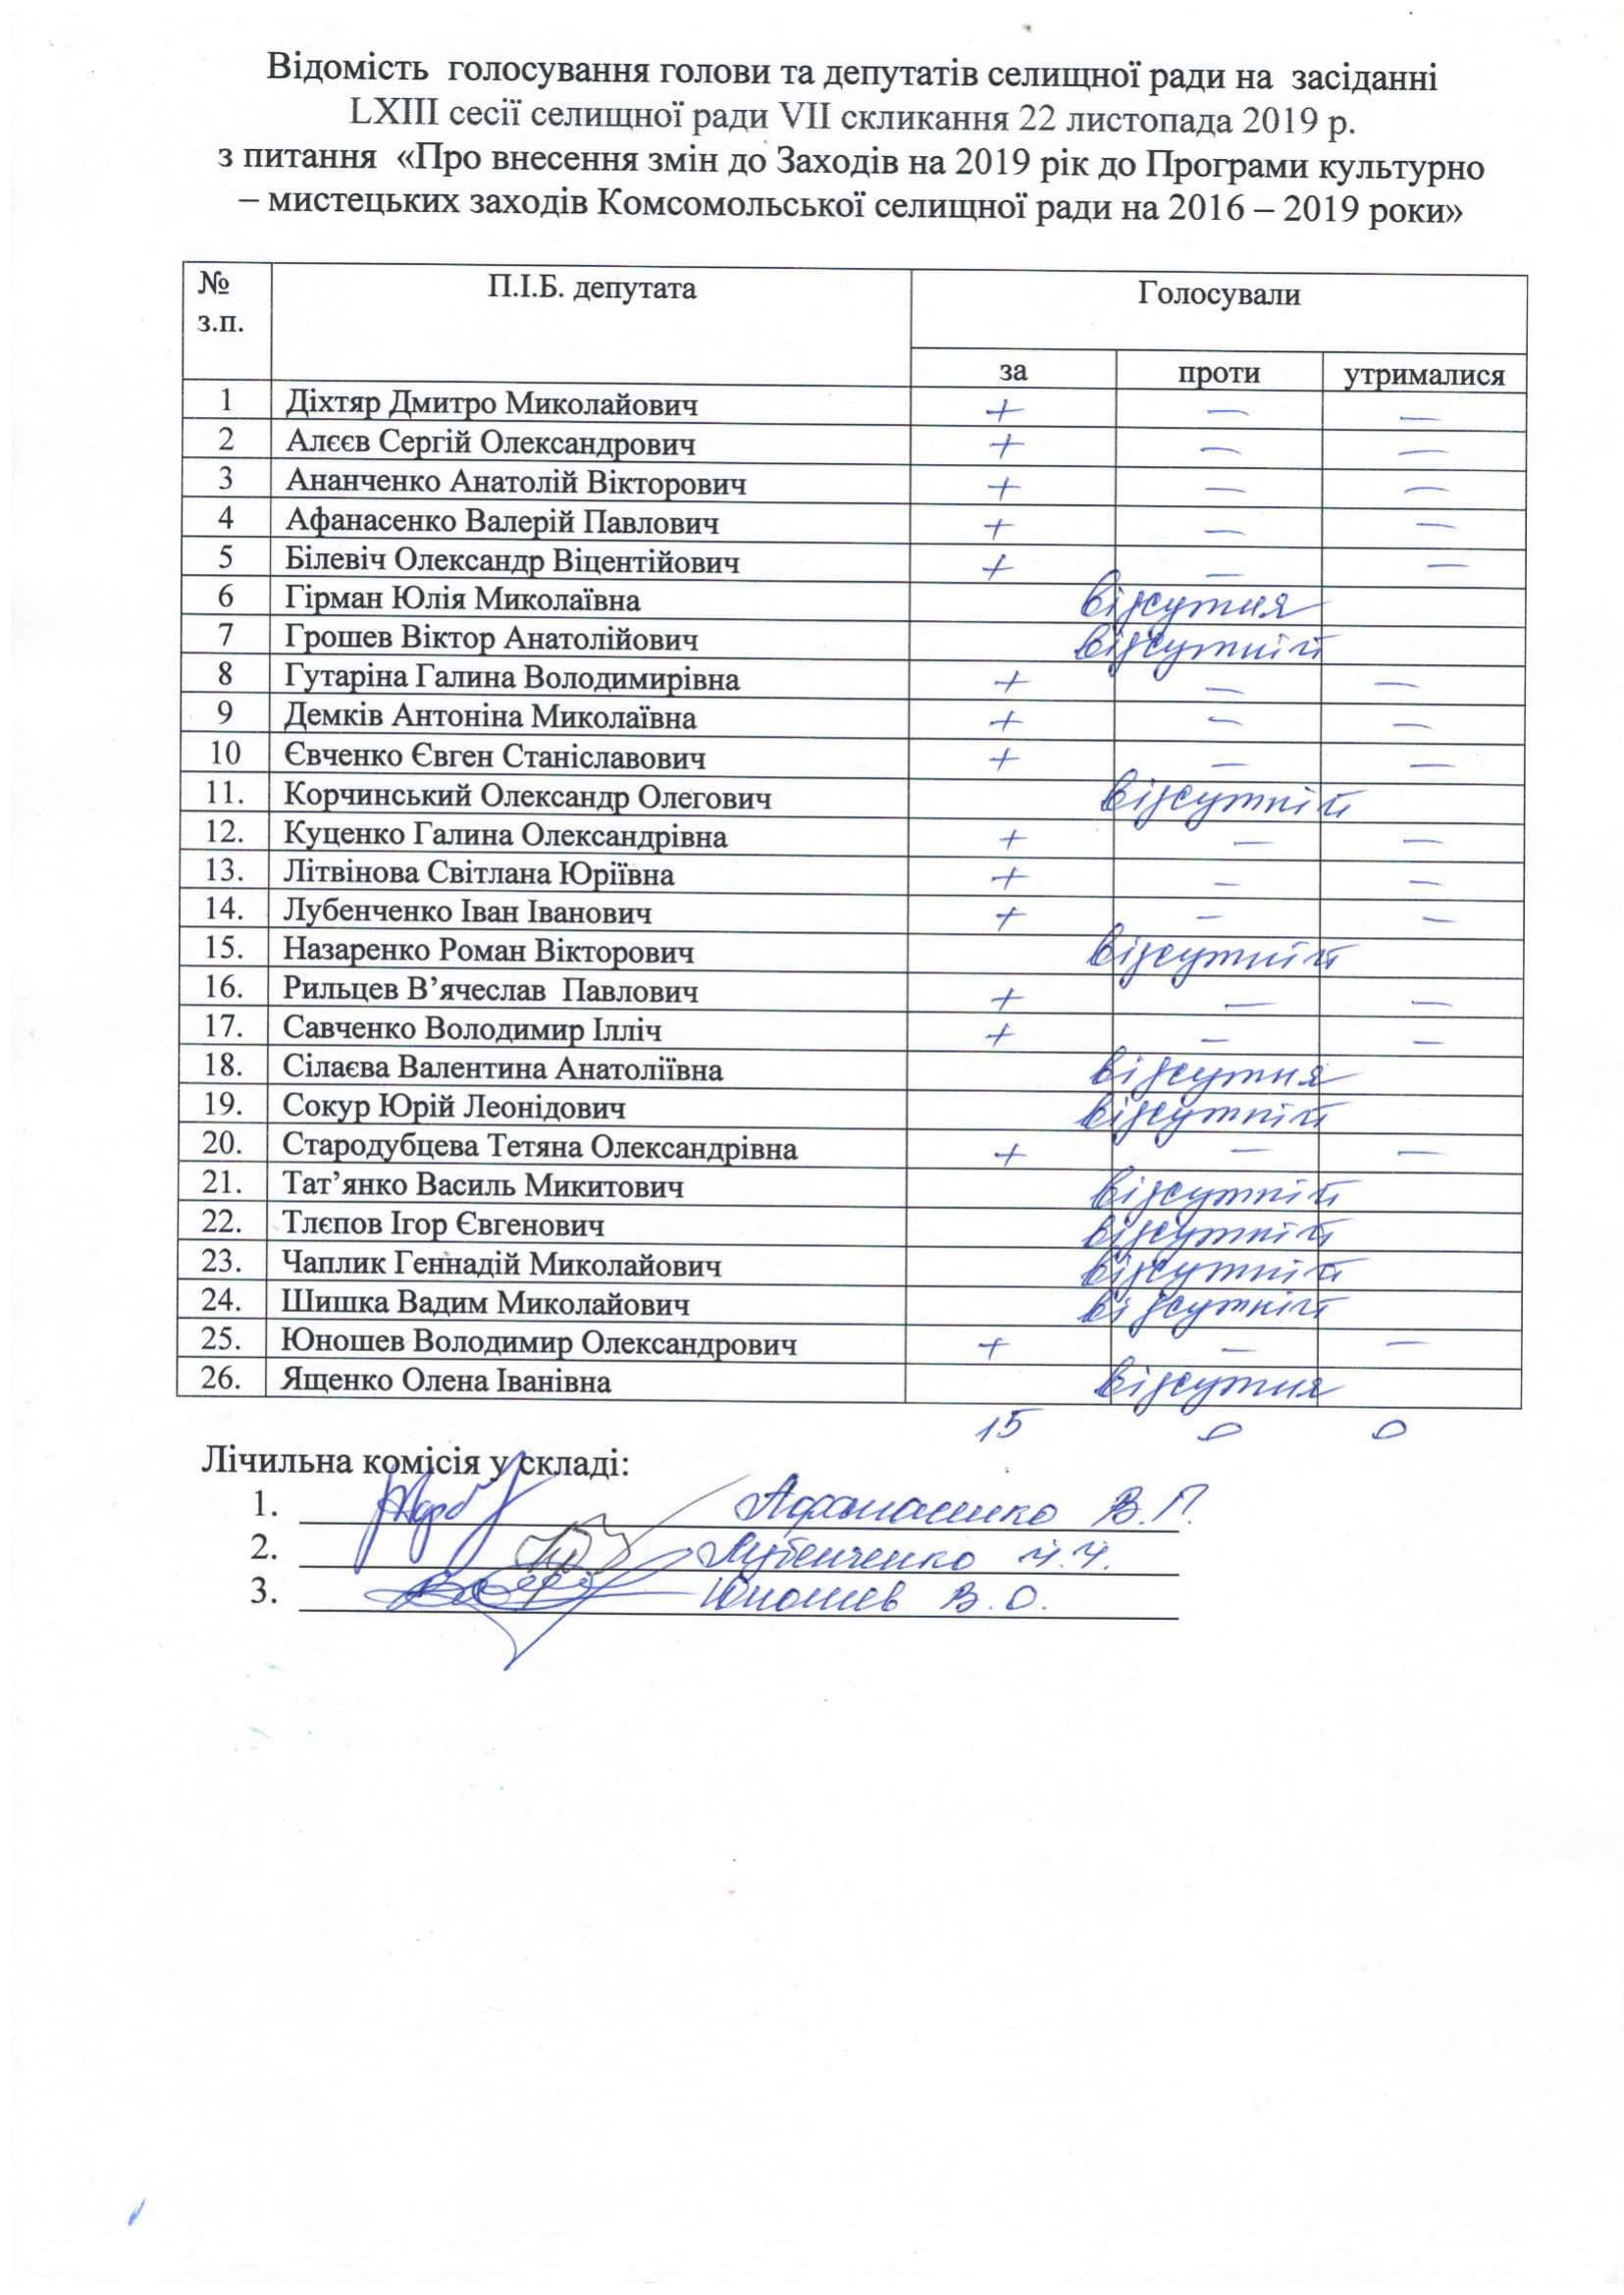 Відомість голосування голови та депутатів селищної ради на засіданні
LXIII сесії селищної ради VII скликання 22 листопада 2019 р.
з питання «Про внесення змін до Заходів на 2019 рік до Програми культурно
– мистецьких заходів Комсомольської селищної ради на 2016 – 2019 роки»
№ з.п. П.І.Б. депутата Голосували
за проти утрималися
1 Діхтяр Дмитро Миколайович + — —
2 Алєєв Сергій Олександрович + — —
3 Ананченко Анатолій Вікторович + — —
4 Афанасенко Валерій Павлович + — —
5 Білевіч Олександр Віцентійович + — —
6 Гірман Юлія Миколаївна відсутня
7 Грошев Віктор Анатолійович відсутній
8 Гутаріна Галина Володимирівна + — —
9 Демків Антоніна Миколаївна + — —
10 Євченко Євген Станіславович + — —
11. Корчинський Олександр Олегович відсутній
12. Куценко Галина Олександрівна + — —
13. Літвінова Світлана Юріївна + — —
14. Лубенченко Іван Іванович + — —
15. Назаренко Роман Вікторович відсутній
16. Рильцев В’ячеслав Павлович + — —
17. Савченко Володимир Ілліч + — —
18. Сілаєва Валентина Анатоліївна відсутня
19. Сокур Юрій Леонідович відсутній
20. Стародубцева Тетяна Олександрівна + — —
21. Тат’янко Василь Микитович відсутній
22. Тлєпов Ігор Євгенович відсутній
23. Чаплик Геннадій Миколайович відсутній
24. Шишка Вадим Миколайович відсутній
25. Юношев Володимир Олександрович + — —
26. Ященко Олена Іванівна відсутня
15 0 0
Лічильна комісія у складі:
1. Афанасенко В.П.
2. Лубенченко І.І.
3. Юношев В.О.